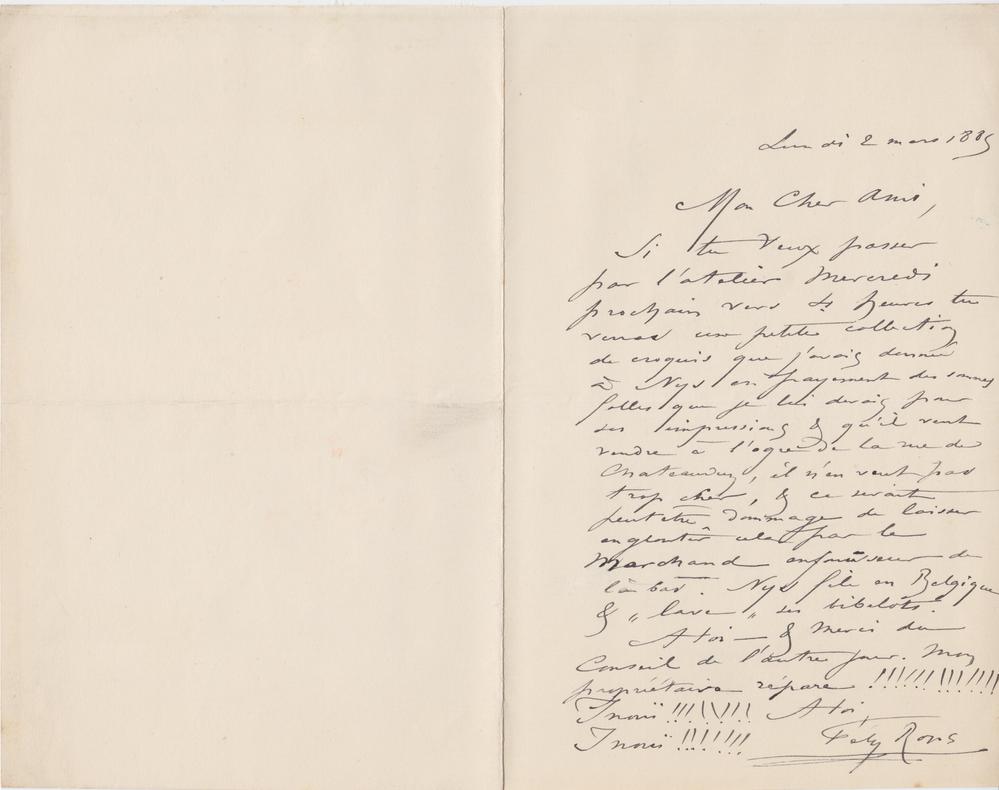 Lundi 2 mars 1885
Mon Cher Ami,
Si tu Veux passer
par l'atelier Mercredi
prochain vers 4 heures tu
verras une petite collection
de croquis que j'avais donnée
à Nys en payement des sommes
folles que je lui devais pour
ses impressions & qu'il veut
vendre à l'ogre de la rue de
Chateaudun, il n'en veut pas
trop cher, & ce serait
peutetre dommage de laisser
engloutir cela par le
Marchand enfouisseur de
là bas. Nys file en Belgique
& "lave" ses bibelots.
A toi — & Merci du
Conseil de l'autre jour. Mon
propriétaire répare !!!!!!!!!!!!
Inouï !!!!!!!! A toi
Inouï !!!!!!! Fély Rops